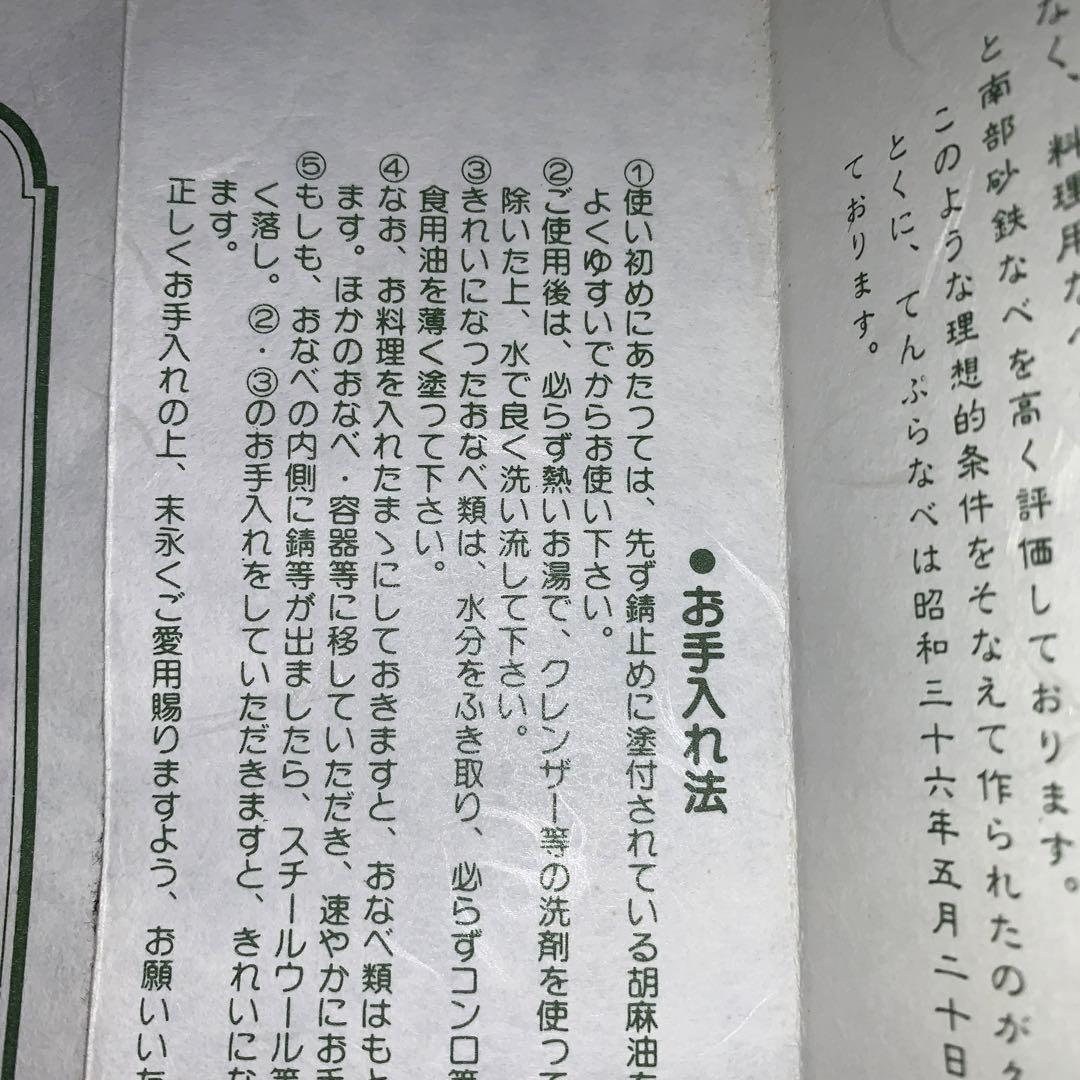 なく、料理用なべ
と南部砂鉄なべを高く評価しております。
このような理想的条件をそなえて作られたのが
とくに、てんぷらなべは昭和三十六年五月二十日
ております。
●お手入れ法
①使い初めにあたっては、先ず錆止めに塗付されている胡麻油を
よくゆすいでからお使い下さい。
②ご使用後は、必らず熱いお湯で、クレンザー等の洗剤を使って
除いた上、水で良く洗い流して下さい。
③きれいになったおなべ類は、水分をふき取り、必らずコンロ等
食用油を薄く塗って下さい。
④なお、お料理を入れたまゝにしておきますと、おなべ類はもと
ます。ほかのおなべ・容器等に移していただき、速やかにお手
⑤もしも、おなべの内側に錆等が出ましたら、スチールウール等
く落し。②・③のお手入れをしていただきますと、きれいにな
ます。
正しくお手入れの上、末永くご愛用賜りますよう、お願いいた